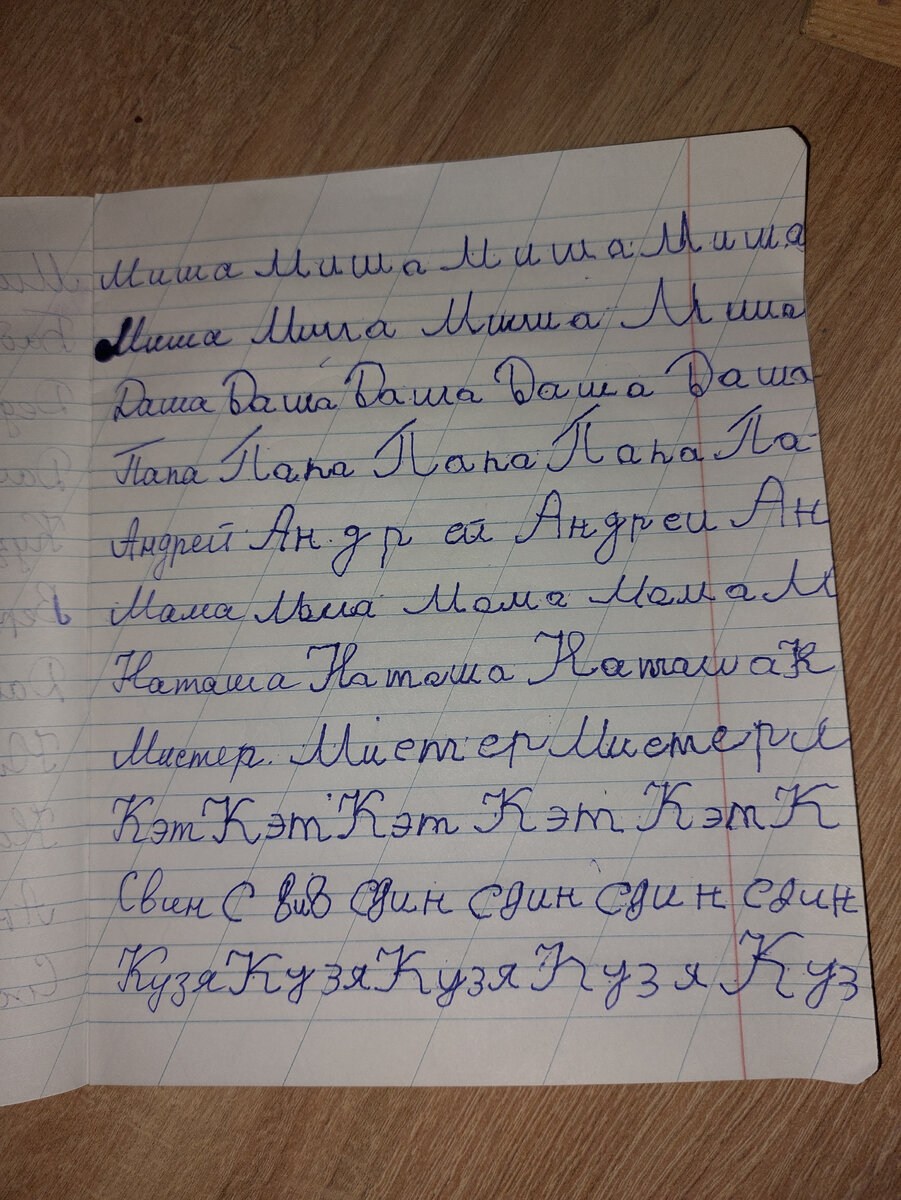 Миша Миша Миша Миша
Миша Миша Миша Миша
Даша Даша Даша Даша Даша
Папа Папа Папа Папа Па
Андрей Андрей Андреи Ан
Мама Мама Мама Мама М
Наташа Наташа Наташа Н
Мистер. Мистер Мистер М
Кэт Кэт Кэт Кэт Кэт К
Свин С вив сдин сдин сдин сдин
Кузя Кузя Кузя Кузя Куз